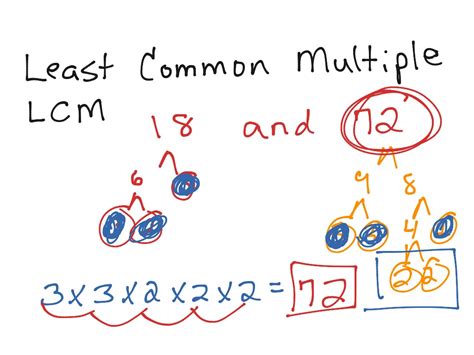 Least Common Multiple
LCM
18 and 72
6
9 8
4
2 2
3 x 3 x 2 x 2 x 2 = 72